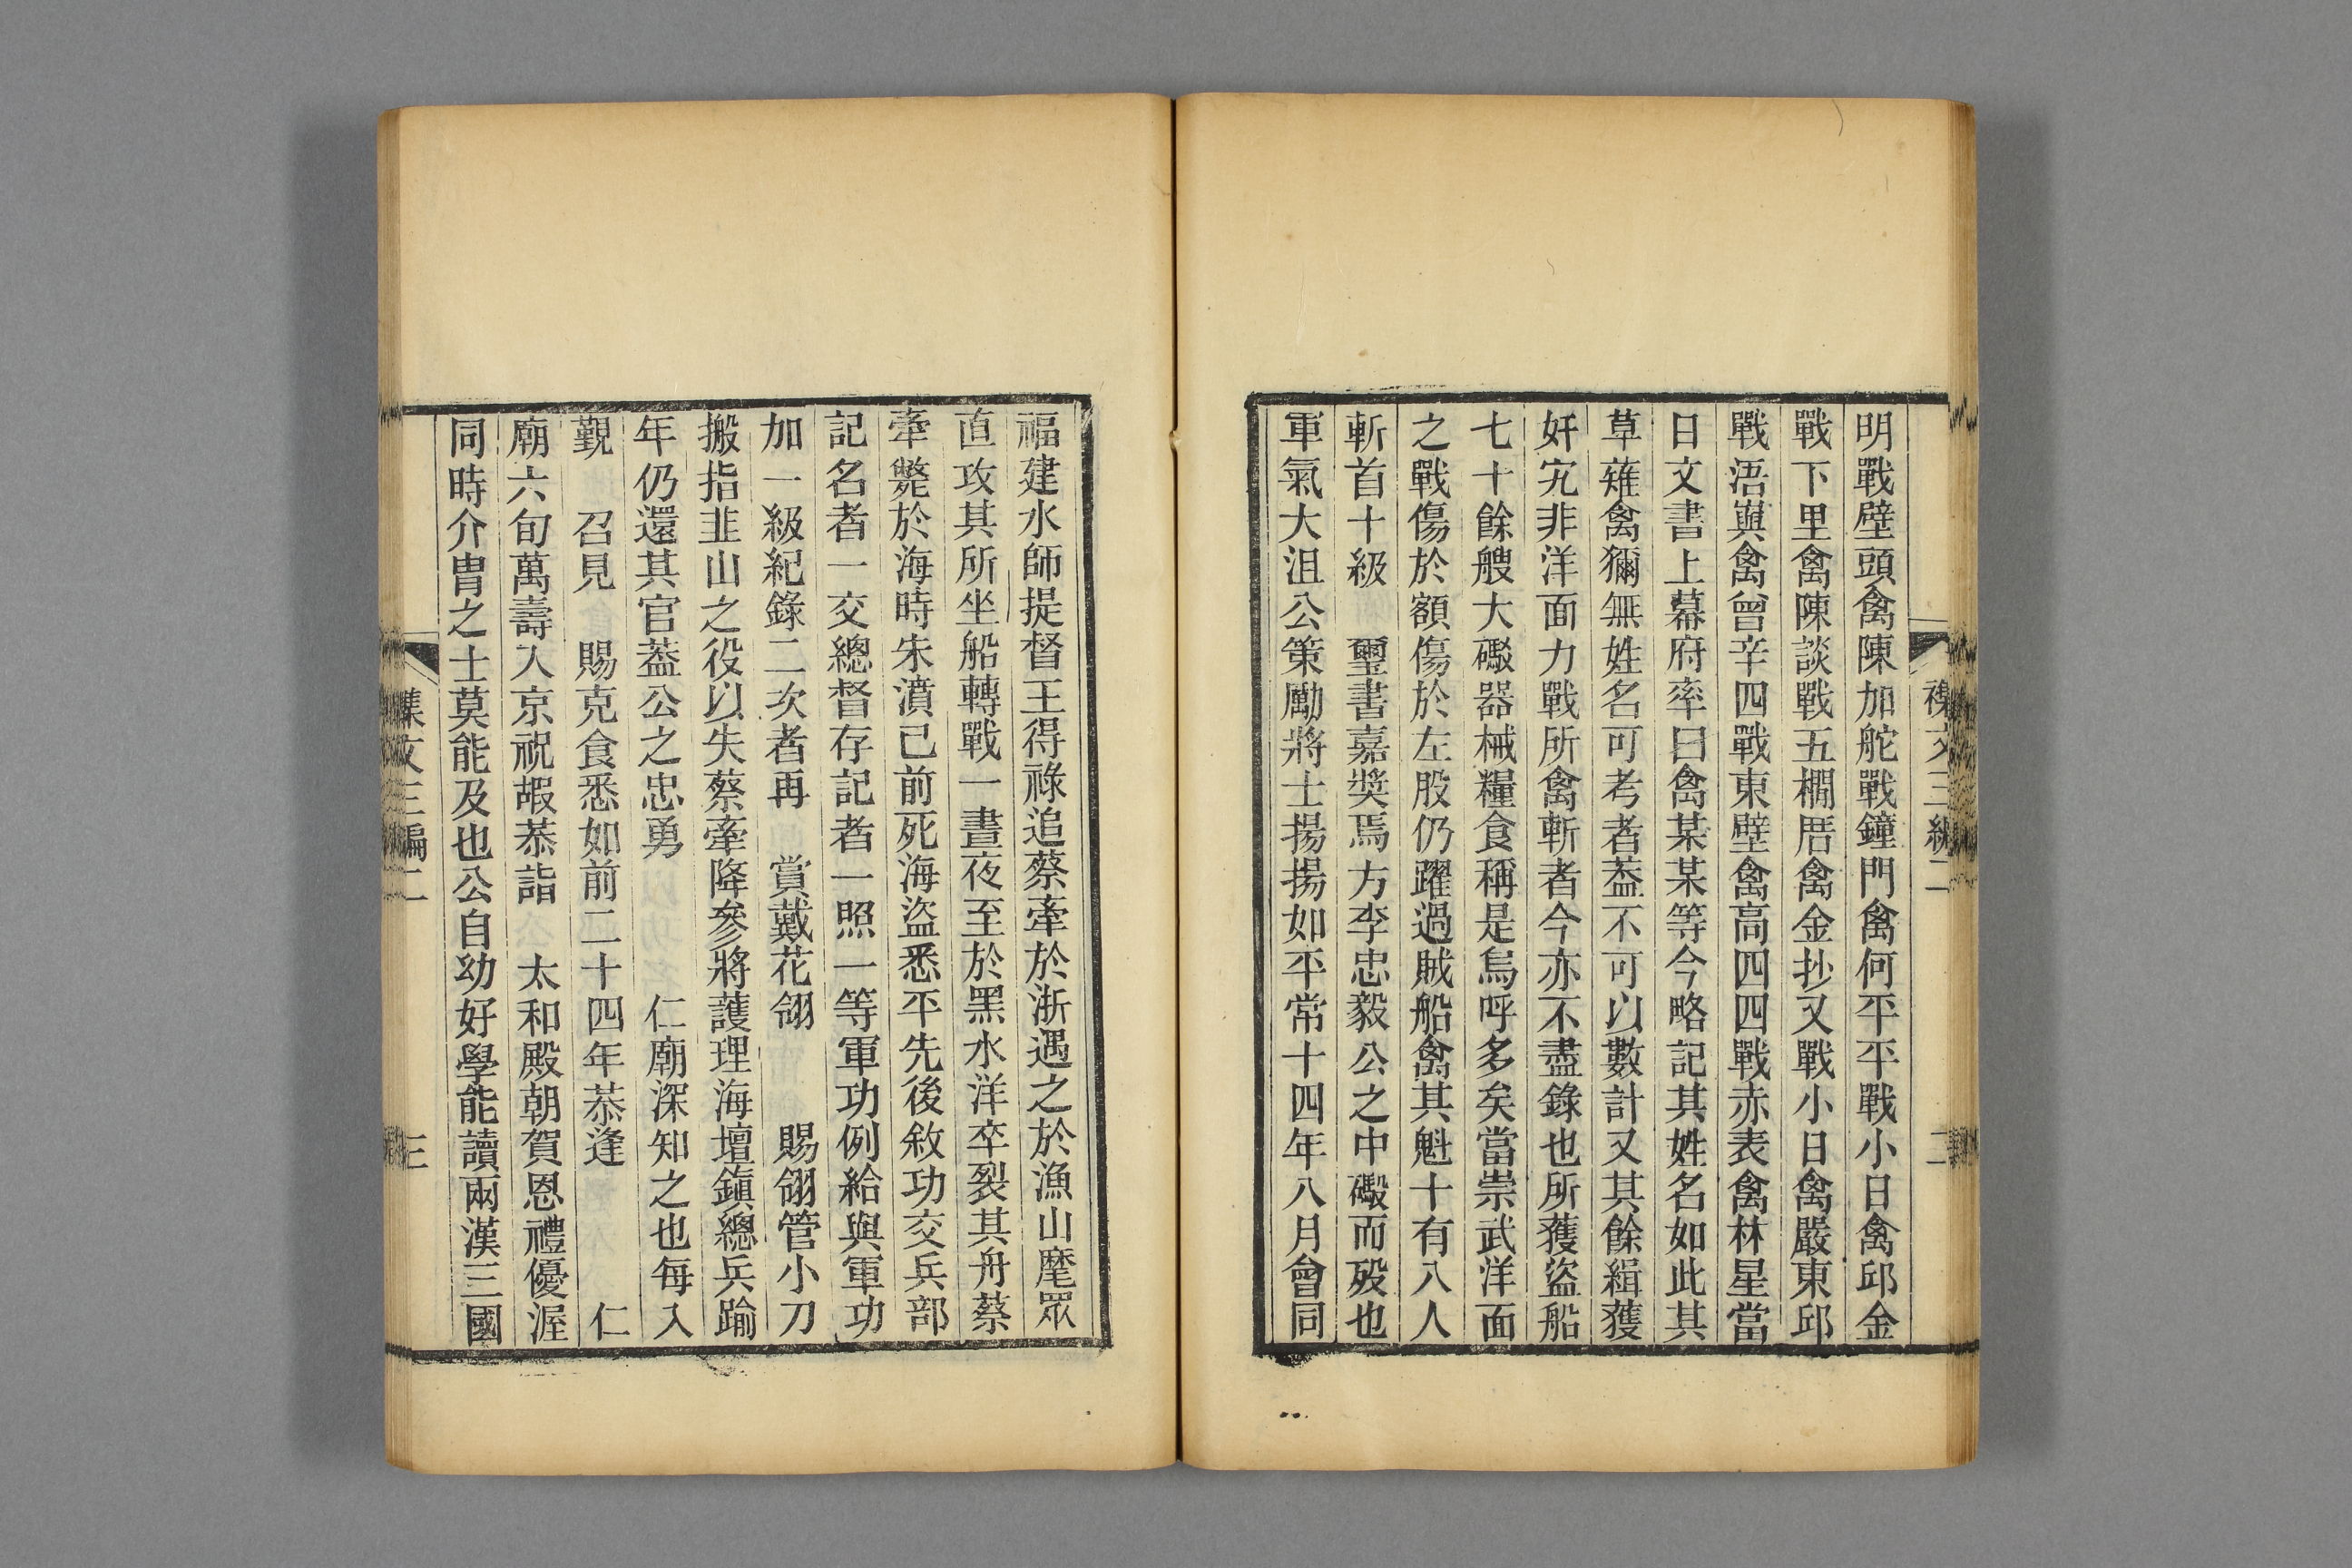 明戰壁頭禽陳加舵戰鐘門禽何平平戰小日禽邱金
戰下里禽陳談戰五橺厝禽金抄又戰小日禽嚴東邱
戰浯嶼禽曾辛四戰東壁禽高四四戰赤表禽林星當
日文書上幕府率曰禽某某等今略記其姓名如此其
草薙禽獮無姓名可考者葢不可以數計又其餘緝獲
奸宄非洋面力戰所禽斬者今亦不盡錄也所獲盜船
七十餘艘大礮器械糧食稱是烏呼多矣當崇武洋面
之戰傷於額傷於左股仍躍過賊船禽其魁十有八人
斬首十級 璽書嘉奬焉方李忠毅公之中礮而歿也
軍氣大沮公策勵將士揚揚如平常十四年八月會同
福建水師提督王得祿追蔡牽於浙遇之於漁山麾眾
直攻其所坐船轉戰一晝夜至於黑水洋卒裂其舟蔡
牽斃於海時朱濆已前死海盜悉平先後敘功交兵部
記名者一交總督存記者一照一等軍功例給與軍功
加一級紀錄二次者再 賞戴花翎 賜翎管小刀
搬指韭山之役以失蔡牽降參將護理海壇鎭總兵踰
年仍還其官葢公之忠勇 仁廟深知之也每入
覲 召見 賜克食悉如前二十四年恭逢 仁
廟六旬萬壽入京祝嘏恭詣 太和殿朝賀恩禮優渥
同時介胄之士莫能及也公自幼好學能讀兩漢三國
集文三編二
三